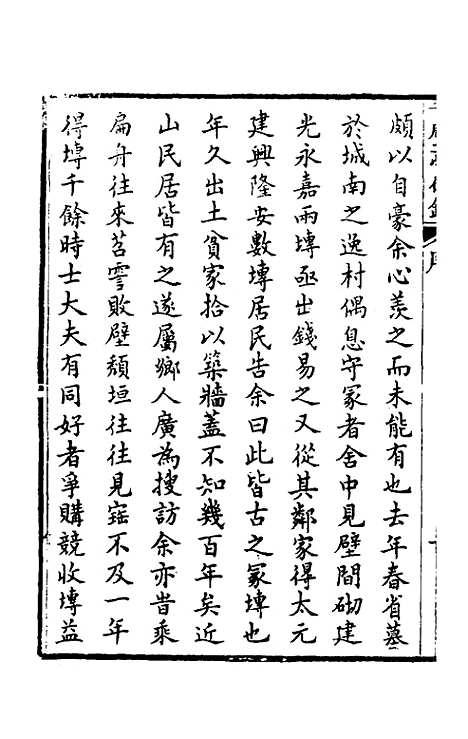 頗以自豪余心羨之而未能有也去年春省墓
於城南之逸村偶息守冢者舍中見壁間砌建
光永嘉兩塼亟出錢易之又從其鄰家得太元
建興隆安數塼居民告余曰此皆古之冢塼也
年久出土貧家拾以築牆蓋不知幾百年矣近
山民居皆有之遂屬鄉人廣為搜訪余亦昔乘
扁舟往來苕霅敗壁頹垣往往見寤不及一年
得塼千餘時士大夫有同好者爭購競收塼益